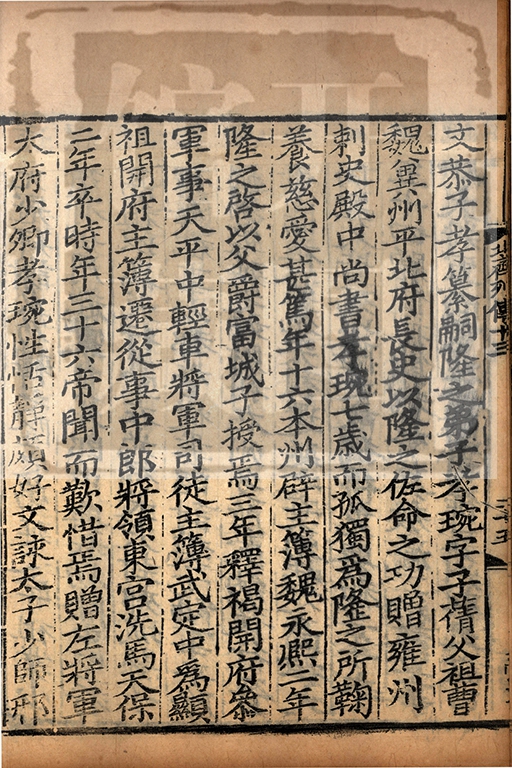 文恭子孝纂嗣隆之弟子孝琬字子蒨父祖曹
魏冀州平北府長史以隆之佐命之功贈雍州
刺史殿中尚書孝琬七歲而孤獨爲隆之所鞠
養慈愛甚篤年十六本州辟主簿魏永熈二年
隆之啓以父爵富城子授焉三年釋褐開府叅
軍事天平中輕車將軍司徒主簿武定中爲顯
祖開府主簿遷從事中郎將領東宫洗馬天保
二年卒時年三十六帝聞而歎惜焉贈左將軍
太府少卿孝琬性恬靜頗好文詠太子少師邢